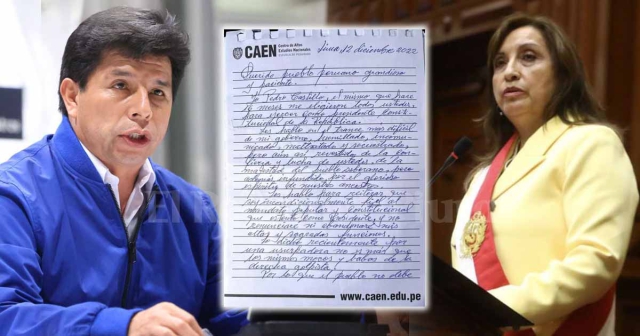 CAEN
Centro de Altos
Estudios Nacionales
Lima, 12 diciembre 2022
Querido pueblo peruano grandioso
y paciente.
Yo Pedro Castillo, el mismo que hace
16 meses me eligieron todos ustedes,
para ejercer como presidente consti-
tucional de la República.
Les hablo en el trance más difícil
de mi gobierno, humillado, incomu-
nicado, maltratado y secuestrado,
pero aún así revestido de la con-
fianza y lucha de ustedes, de la
majestad del pueblo soberano, pero
además infundido por el glorioso
espíritu de nuestros
Les hablo para reiterar que
soy incondicionalmente fiel al
mandato popular y constitucional
que ostento como presidente, y no
renunciaré ni abandonaré mis
altas y sagradas funciones.
Lo dicho recientemente por
una usurpadora no es más que
los mismos mocos y babas de la
derecha golpista.
Por lo que el pueblo no debe
www.caen.edu.pe